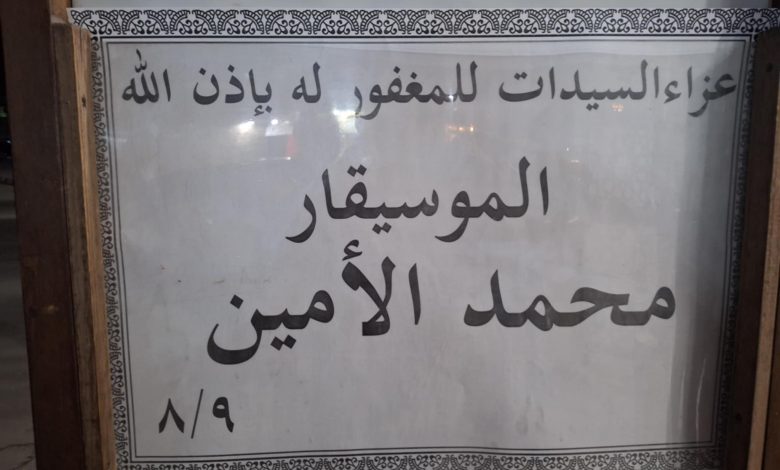 عزاء السيدات للمغفور له بإذن الله
الموسيقار
محمد الأمين
٨/٩